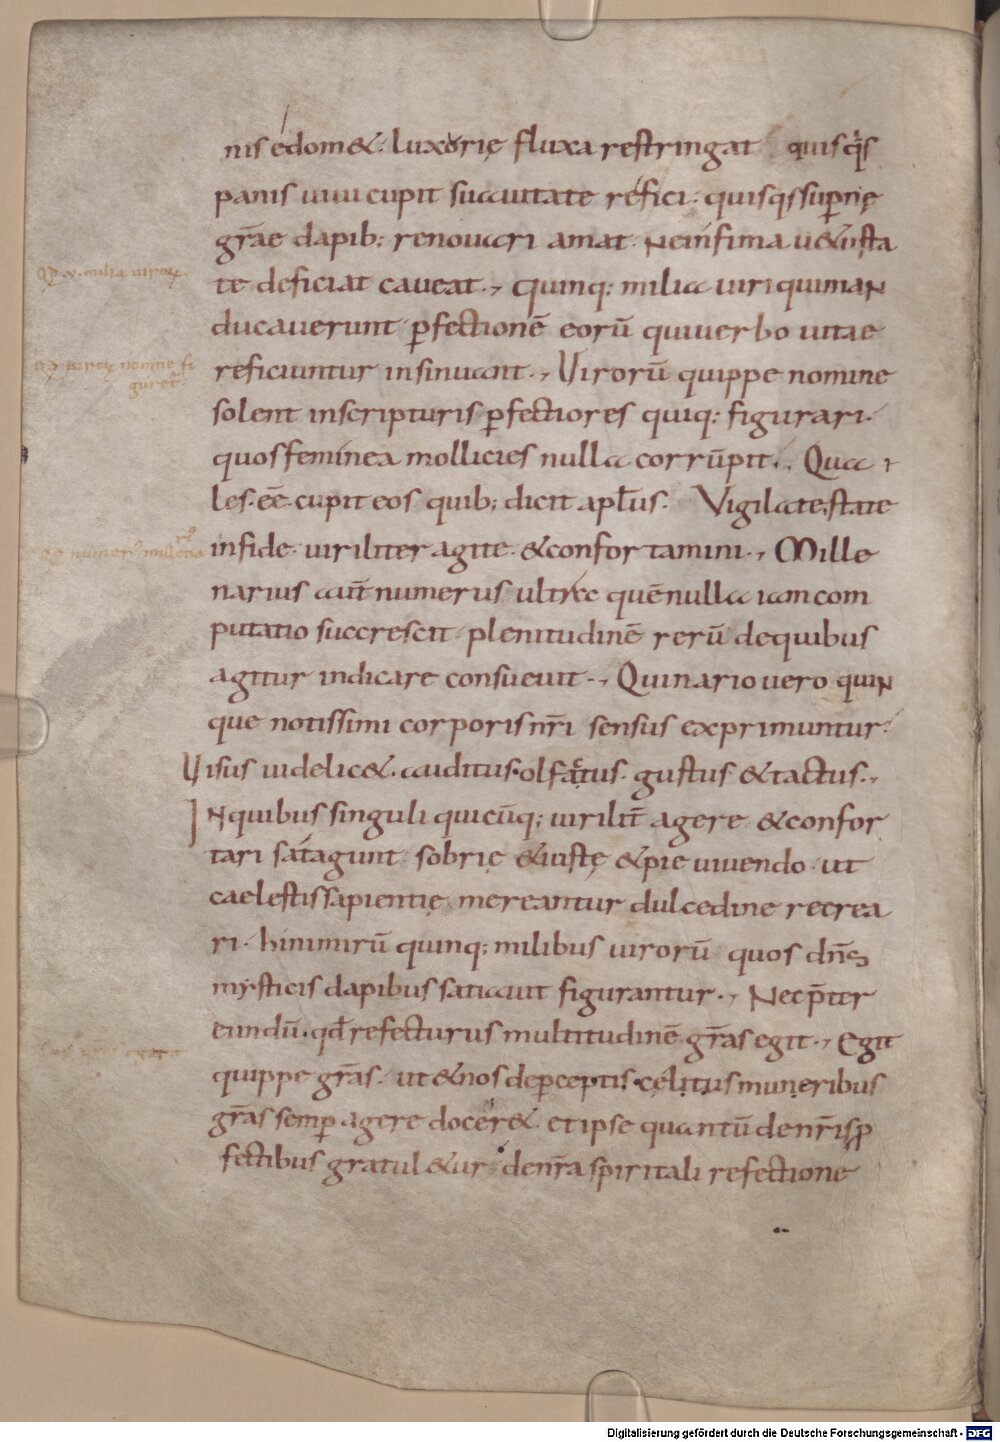 nis edom&. luxorię fluxa restringat quisq̇s
panis uiui cupit suauitate refici. quisqssup̄nę
gr̄ae dapib; renouari amat. Neinfima u&usta
te deficiat caueat., Quinq; milia uiri quiman
ducauerunt p̄fectionē eorū quiuerbo uitae
reficiuntur insinuant., Virorū quippe nomine
solent inscripturis p̄fectiores quiq; figurari.
quosfeminea mollicies nulla corrūpit., Qua
les. eē. cupit eos quib; dicit apl̄us. Vigilate, state
infide. uiriliter agite. &confortamini., Mille
narius aut̄ numerus ultra quē nulla iam com
putatio succrescit. plenitudinē rerū dequibus
agitur indicare consueuit., Quinario uero quin
que notissimi corporis nr̄i sensus exprimuntur.
Visus uidelic&. auditus. olfactus. gustus &tactus.,
INquibus singuli quicūq; uirilit̄ agere &confor
tari satagunt. sobrię &iustę &pie uiuendo. ut
caelestis sapientię mereantur dulcedine recrea
ri. hinimirū quinq; milibus uirorū quos dn̄s
mysticis dapibus satiauit figurantur., Nec p̄ter
eundū. qđ refecturus multitudinē gr̄as egit., Egit
quippe gr̄as. ut &nos dep̄ceptis cęlitus muneribus
gr̄as semp̄ agere docer&. et ipse quantū denr̄is p̄
fectibus gratul&ur denr̄a spiritali refectione
Digitalisierung gefördert durch die Deutsche Forschungsgemeinschaft - DFG